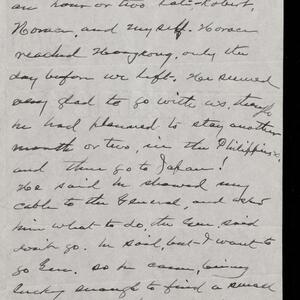 an hour or two late. Robert,
Horace, and myself. Horace
reached Hongkong, only the
day before we left. He seemed
very glad to go with us, though
he had planned to stay another
month or two, in the Philippines,
and then go to Japan!
He said he showed my
cable to the General, and asked
him what to do, the Gen. said
don't go. He said, but I want to
go Gen. so he came, being
lucky enough to find a small